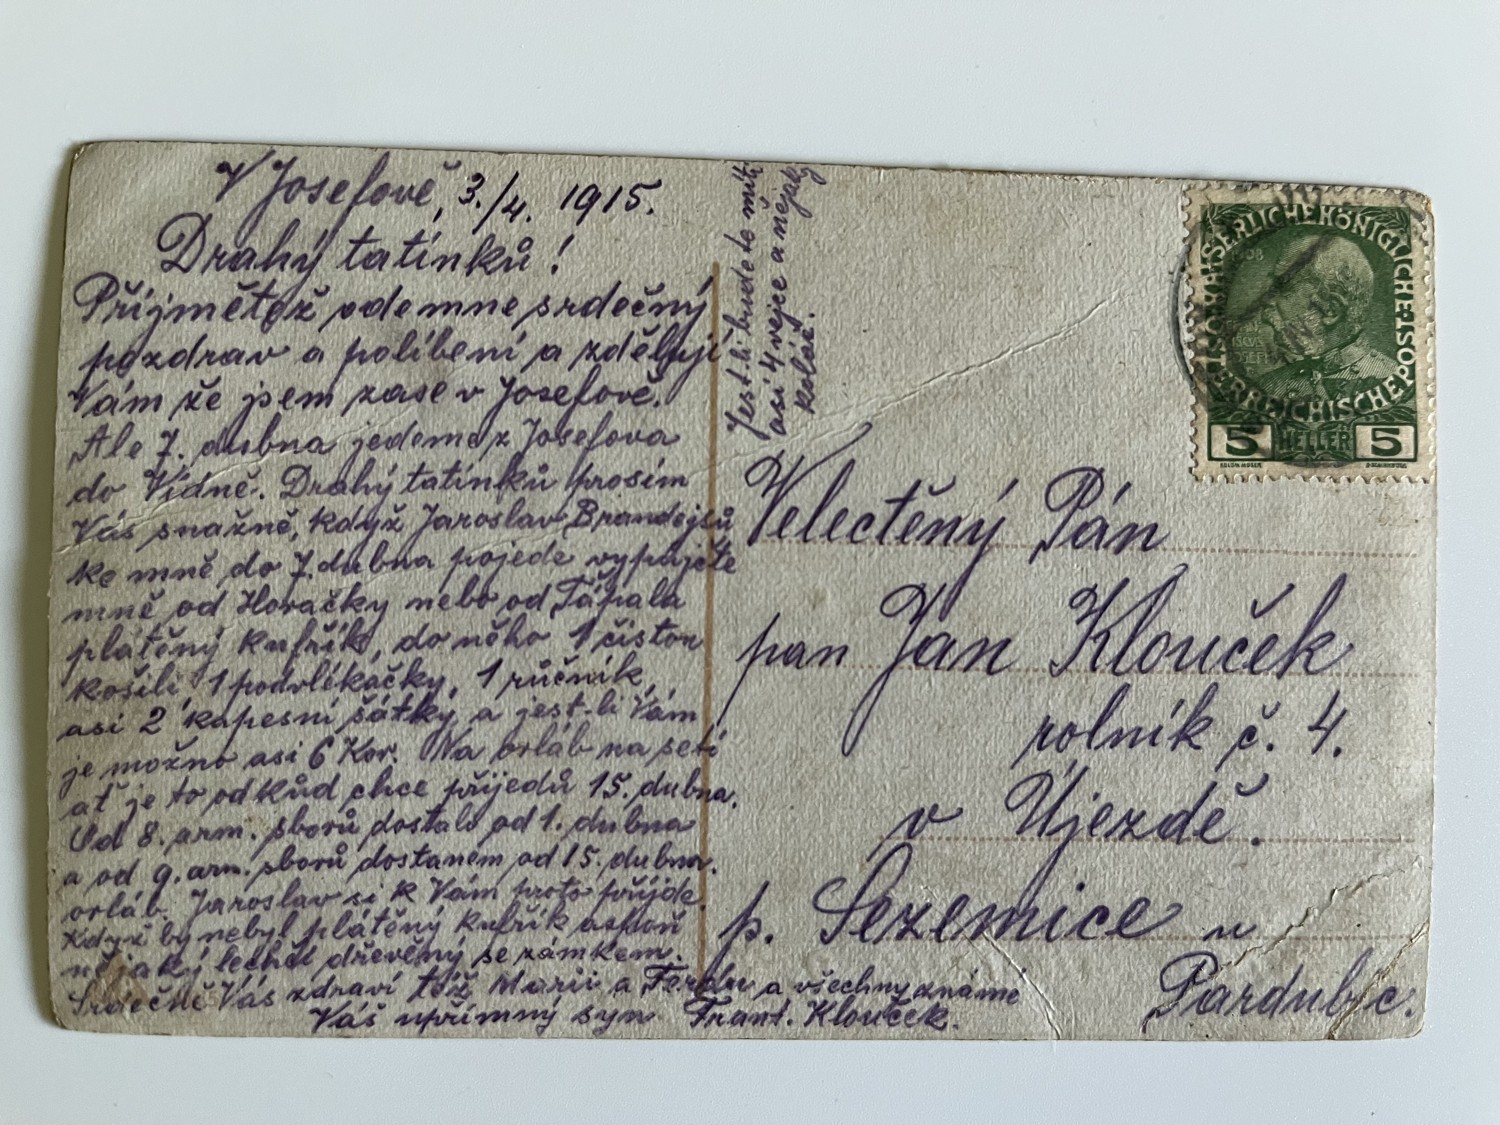 V Josefově, 3./4. 1915.
Drahý tatínků!
Příjmětež odemne srdečný
pozdrav a políbení a zděluji
Vám že jsem zase v Josefově.
Ale 7. dubna jedeme z Josefova
do Vídně. Drahý tatínků prosím
Vás snažně, když Jaroslav Brandejsů
ke mně do 7. dubna pojede vypujčte
mně od Horačky nebo od Ťápala
plátěný kufřík, do něho 1 čistou
košili 1 podvlékačky, 1 růčník,
asi 2 kapesní šátky a jest-li Vám
je možno asi 6 Kor. Na orláb na setí
ať je to odkůd chce příjedů 15. dubna.
Od 8. arm. sborů dostali od 1. dubna
a od 9. arm. sborů dostanem od 15. dubna.
orláb. Jaroslav si k Vám proto příjde
Když by nebyl plátěný kufřík aspoň
nějaký lechčí dřevěný se zámkem.
Srdečně Vás zdraví též Marii a Ferdu a všechny známé
Váš upřímný syn Frant. Klouček.
Jest-li bude to míti
asi 4 vejce a nějaký
koláč.
KAISERLICHE KÖNIGLICHE
ÖSTERREICHISCHE POST
5 HELLER 5
Velectěný Pán
pan Jan Klouček
rolník č. 4.
v Újezdě.
p. Sezemice u
Pardubic.